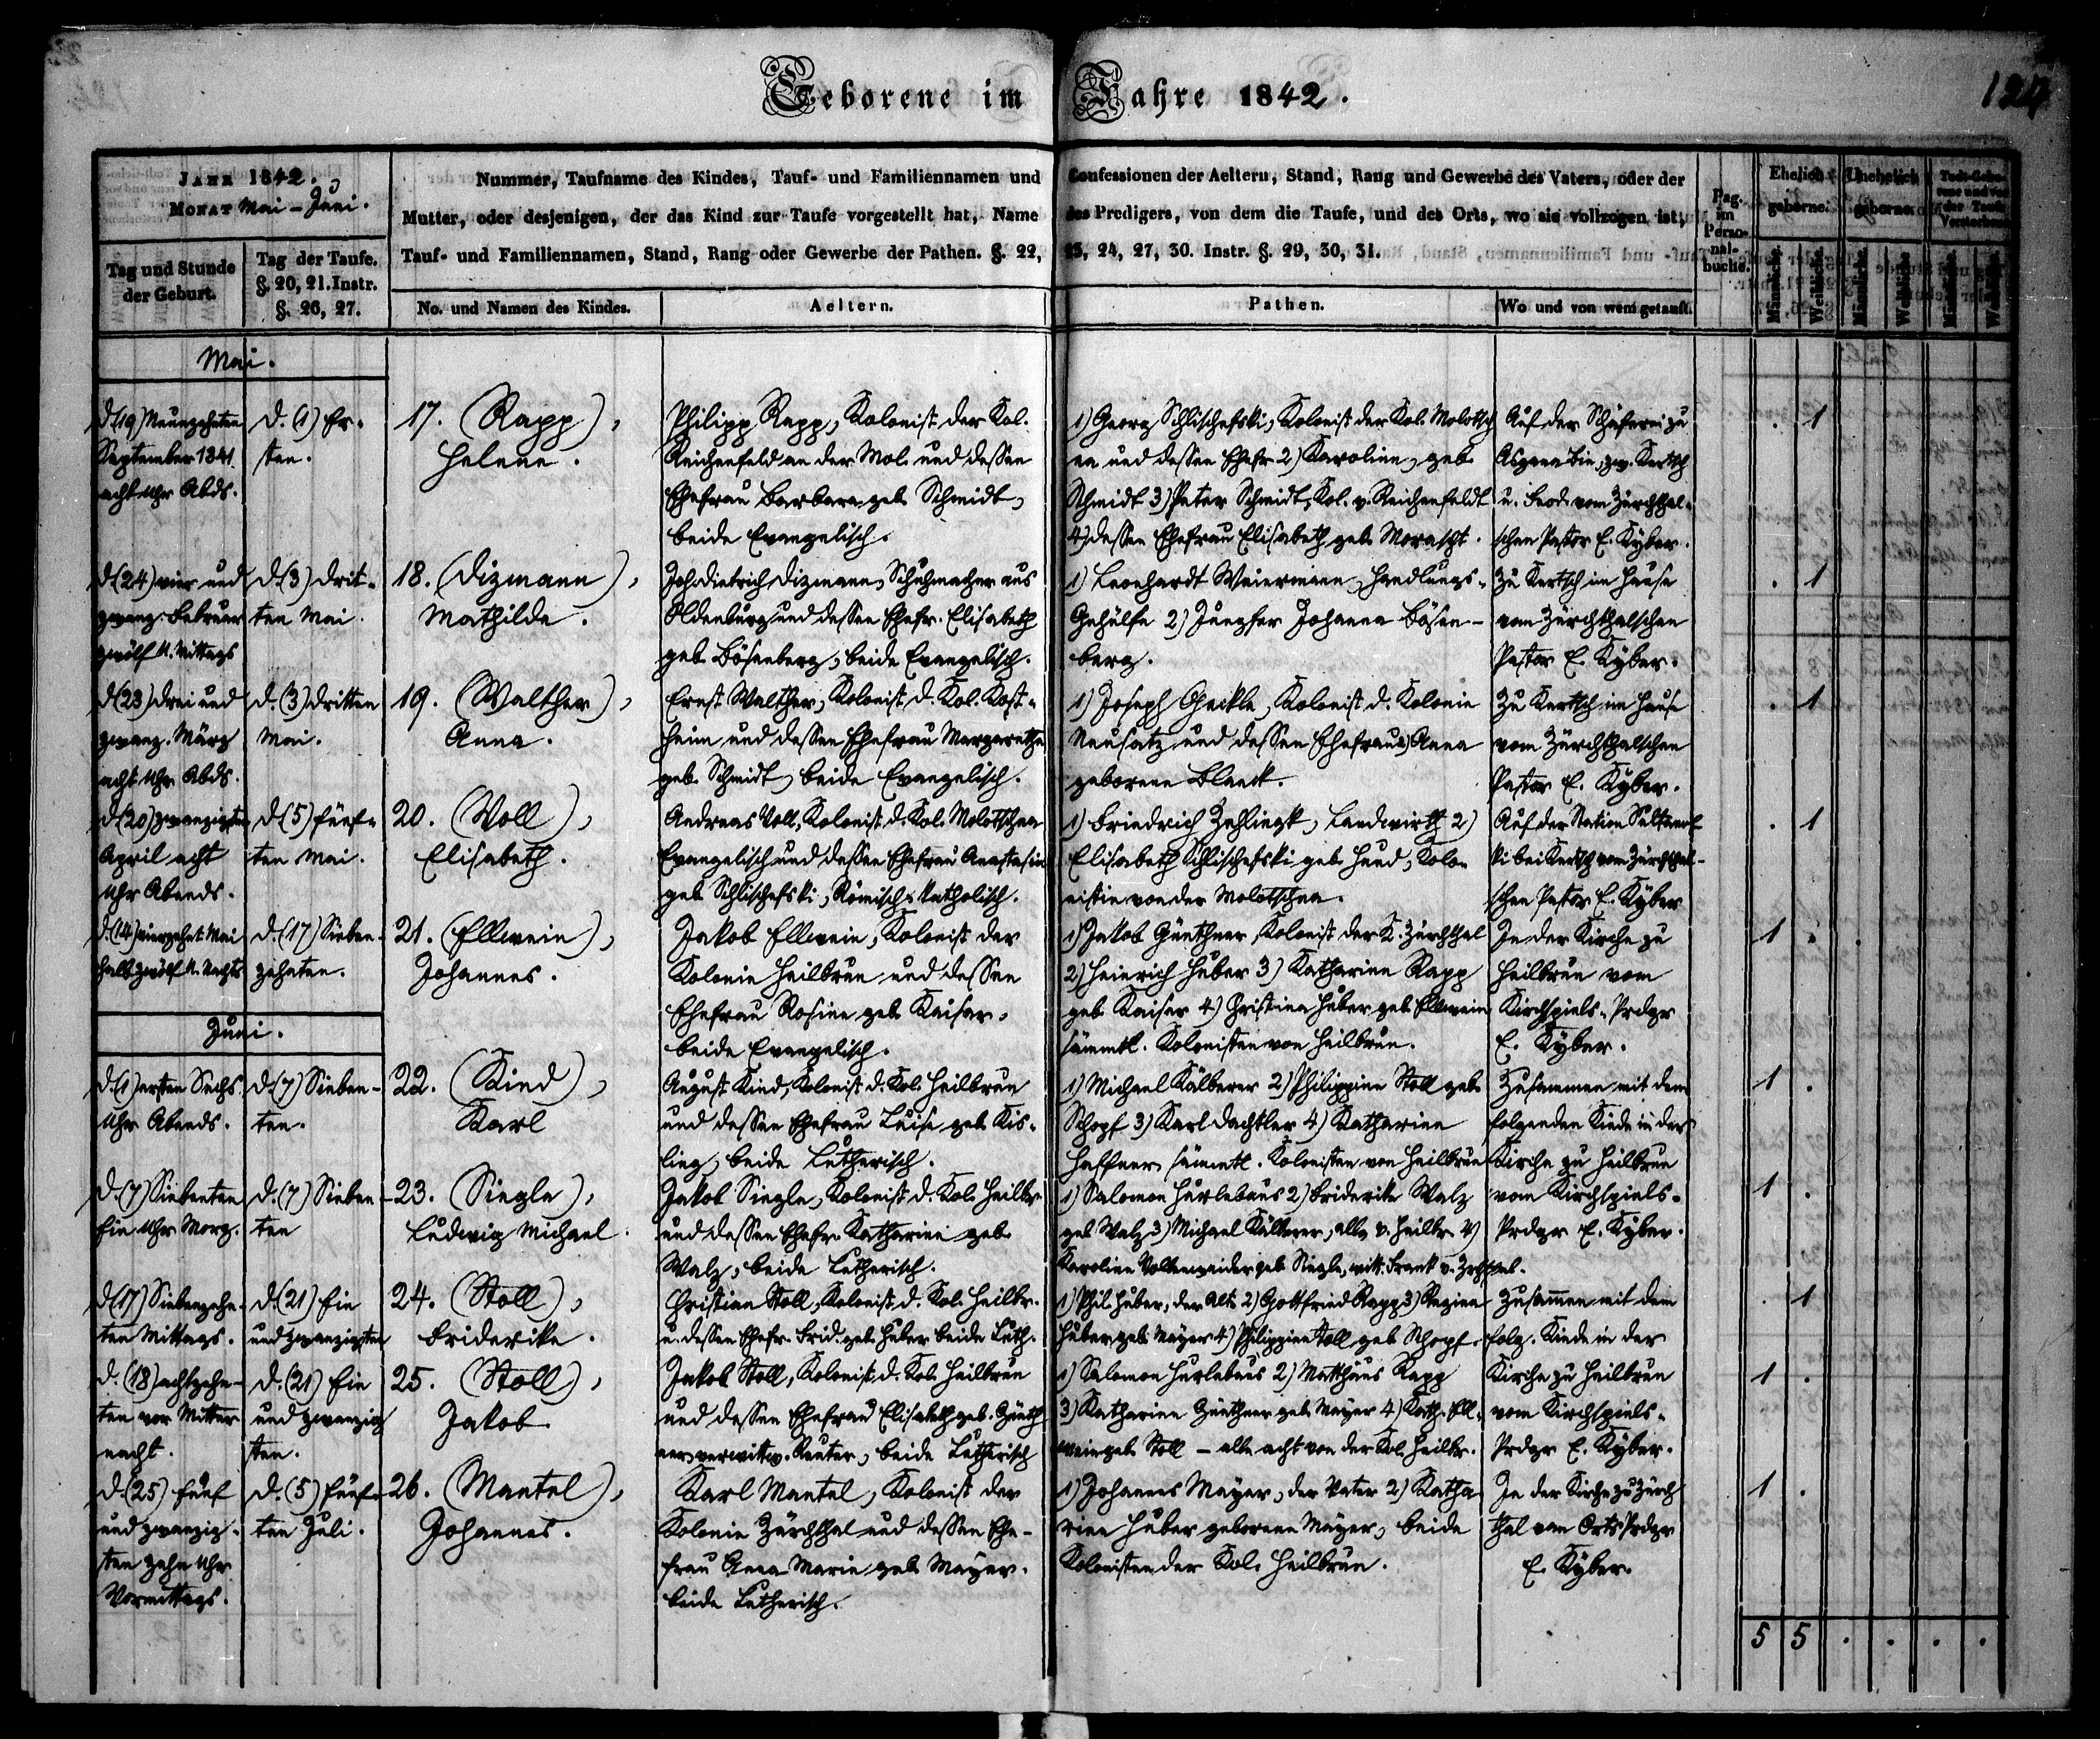 Geborene im Jahre 1842.
124
JAHR 1842.
MONAT Mai – Juni.
Nummer, Taufname des Kindes, Tauf- und Familiennamen und Confessionen der Aeltern, Stand, Rang und Gewerbe des Vaters, oder der
Mutter, oder desjenigen, der das Kind zur Taufe vorgestellt hat, Name des Predigers, von dem die Taufe, und des Orts, wo sie vollzogen ist,
Tauf- und Familiennamen, Stand, Rang oder Gewerbe der Pathen. §. 22, 23, 24, 27, 30. Instr. §. 29, 30, 31.
Pag.
im
Perso-
nal-
buche.
Ehelich
geborne.
Unehelich
geborne.
Todt-Gebo-
rene und vor
der Taufe
Verstorbene
Tag und Stunde
der Geburt.
Tag der Taufe.
§. 20, 21. Instr.
§. 26, 27.
No. und Namen des Kindes.
Aeltern.
Pathen.
Wo und von wem getauft.
Männliche.
Weibliche.
Männliche.
Weibliche.
Männliche.
Weibliche.
Mai.
d. (19) Neunzehnten
September 1841
acht Uhr Abds.
d. (1) Er-
sten.
17. (Rapp),
Helene.
Philipp Rapp, Kolonist der Kol.
Reichenfeld an der Mol. und dessen
Ehefrau Barbara geb. Schmidt,
beide Evangelisch.
1) Georg Schlischefski, Kolonist der Kol. Molotsch
na und dessen Ehefr. 2) Karoline, geb.
Schmidt 3) Peter Schmidt, Kol. v. Reichenfeldt
4) dessen Ehefrau Elisabeth geb. Morascht.
Auf der Schäferei zu
zw. Kertsch
u. Feod. vom Zürchthal-
schen Pastor E. Kyber.
. 1
d. (24) vier und
zwanz. Februar
zwölf U. Mittags
d. (3) drit-
ten Mai.
18. (Dizmann),
Mathilde.
Joh. Dietrich Dizmann, Schuhmacher aus
Oldenburg und dessen Ehefr. Elisabeth
geb. Bösenberg, beide Evangelisch.
1) Leonhardt Weiermann, Handlungs-
Gehülfe 2) Jungfer Johanna Bösen-
berg.
Zu Kertsch im Hause
vom Zürchthalschen
Pastor E. Kyber.
. 1
d. (23) drei und
zwanz. März
acht Uhr Abds.
d. (3) dritten
Mai.
19. (Walther),
Anna.
Ernst Walther, Kolonist d. Kol. Kost-
heim und dessen Ehefrau Margarethe
geb. Schmidt, beide Evangelisch.
1) Joseph Geikle, Kolonist d. Kolonie
Neusatz und dessen Ehefrau 2) Anna
geborene Blank.
Zu Kertsch im Hause
vom Zürchthalschen
Pastor E. Kyber.
. 1
d. (20) zwanzigsten
April acht
Uhr Abends.
d. (5) fünf-
ten Mai.
20. (Voll),
Elisabeth.
Andreas Voll, Kolonist d. Kol. Molotschna
Evangelisch und dessen Ehefrau Anastasia
geb. Schlischefski, Römisch-katholisch.
1) Friedrich Landwirth 2)
Elisabeth Schlischefski geb. Hund, Kolo-
nistin von der Molotschna.
Auf der Station Sultanof
ki bei Kertsch vom Zürchthal-
schen Pastor E. Kyber
. 1
d. (14) vierzehnt. Mai
halb zwölf U. Nachts
d. (17) Sieben-
zehnten.
21. (Ellwein),
Johannes.
Jakob Ellwein, Kolonist der
Kolonie Heilbrun und dessen
Ehefrau Rosine geb. Kaiser,
beide Evangelisch.
1) Jakob Günthner, Kolonist der K. Zürchthal
2) Heinrich Huber 3) Katharine Rapp
geb. Kaiser 4) Christina Huber geb. Ellwein
sämmtl. Kolonisten von Heilbrun.
In der Kirche zu
Heilbrun vom
Kirchspiels-Prdgr
E. Kyber.
1 .
Juni.
d. (1) ersten Sechs
Uhr Abends.
d. (7) Sieben-
ten.
22. (Kind),
Karl
August Kind, Kolonist d. Kol. Heilbrun
und dessen Ehefrau Luise geb. Kis-
ling, beide Lutherisch.
1) Michael Kälberer 2) Philippine Stoll geb.
Schopf 3) Karl Dachtler 4) Katharine
Haffner sämmtl. Kolonisten von Heilbrun
Zusammen mit dem
folgenden Kinde in der
Kirche zu Heilbrun
1 .
d. (7) Siebenten
Ein Uhr Morg.
d. (7) Sieben-
ten
23. (Siegle),
Ludwig Michael.
Jakob Siegle, Kolonist d. Kol. Heilbr.
und dessen Ehefr. Katharine geb.
Walz, beide Lutherisch.
1) Salomon Hurlebaus 2) Friderike Walz
geb. Walz 3) Michael Kälberer, alle v. Heilbr. 4)
Karoline Vollenweider geb. Siegle, witt. Frank v. Zrchthal.
vom Kirchspiels-
Prdgr E. Kyber.
1 .
d. (17) Siebenzehn-
ten Mittags.
d. (21) Ein
und zwanzigsten
24. (Stoll),
Friderike.
Christian Stoll, Kolonist d. Kol. Heilbr.
u. dessen Ehefr. Frid. geb. Huber beide Luth.
1) Phil. Huber, der Alte 2) Gottfried Rapp 3) Regina
Huber geb. Mayer 4) Philippine Stoll geb. Schopf.
Zusammen mit dem
folg. Kinde in der
. 1
d. (18) achtzehn-
ten vor Mitter-
nacht.
d. (21) Ein
und zwanzig
sten.
25. (Stoll),
Jakob
Jakob Stoll, Kolonist d. Kol. Heilbrun
und dessen Ehefrau Elisabeth geb. Günth
ner verwittw. Reuter, beide Lutherisch
1) Salomon Hurlebaus 2) Matthäus Rapp
3) Katharine Günthner geb. Mayer 4) Kath. Ell-
wein geb. Stoll – alle acht von der Kol. Heilbr.
Kirche zu Heilbrun
vom Kirchspiels-
Prdgr E. Kyber.
1 .
d. (25) fünf
und zwanzig-
sten zehn Uhr
Vormittags.
d. (5) fünf-
ten Juli.
26. (Mantel),
Johannes.
Karl Mantel, Kolonist der
Kolonie Zürchthal und dessen Ehe-
frau Anna Marie geb. Mayer.
beide Lutherisch.
1) Johannes Mayer, der Vater 2) Katha
rine Huber geborene Mayer, beide
Kolonisten der Kol. Heilbrun.
In der Kirche zu Zürch
thal vom Orts Prdgr
E. Kyber.
1 .
5 5 . . . .